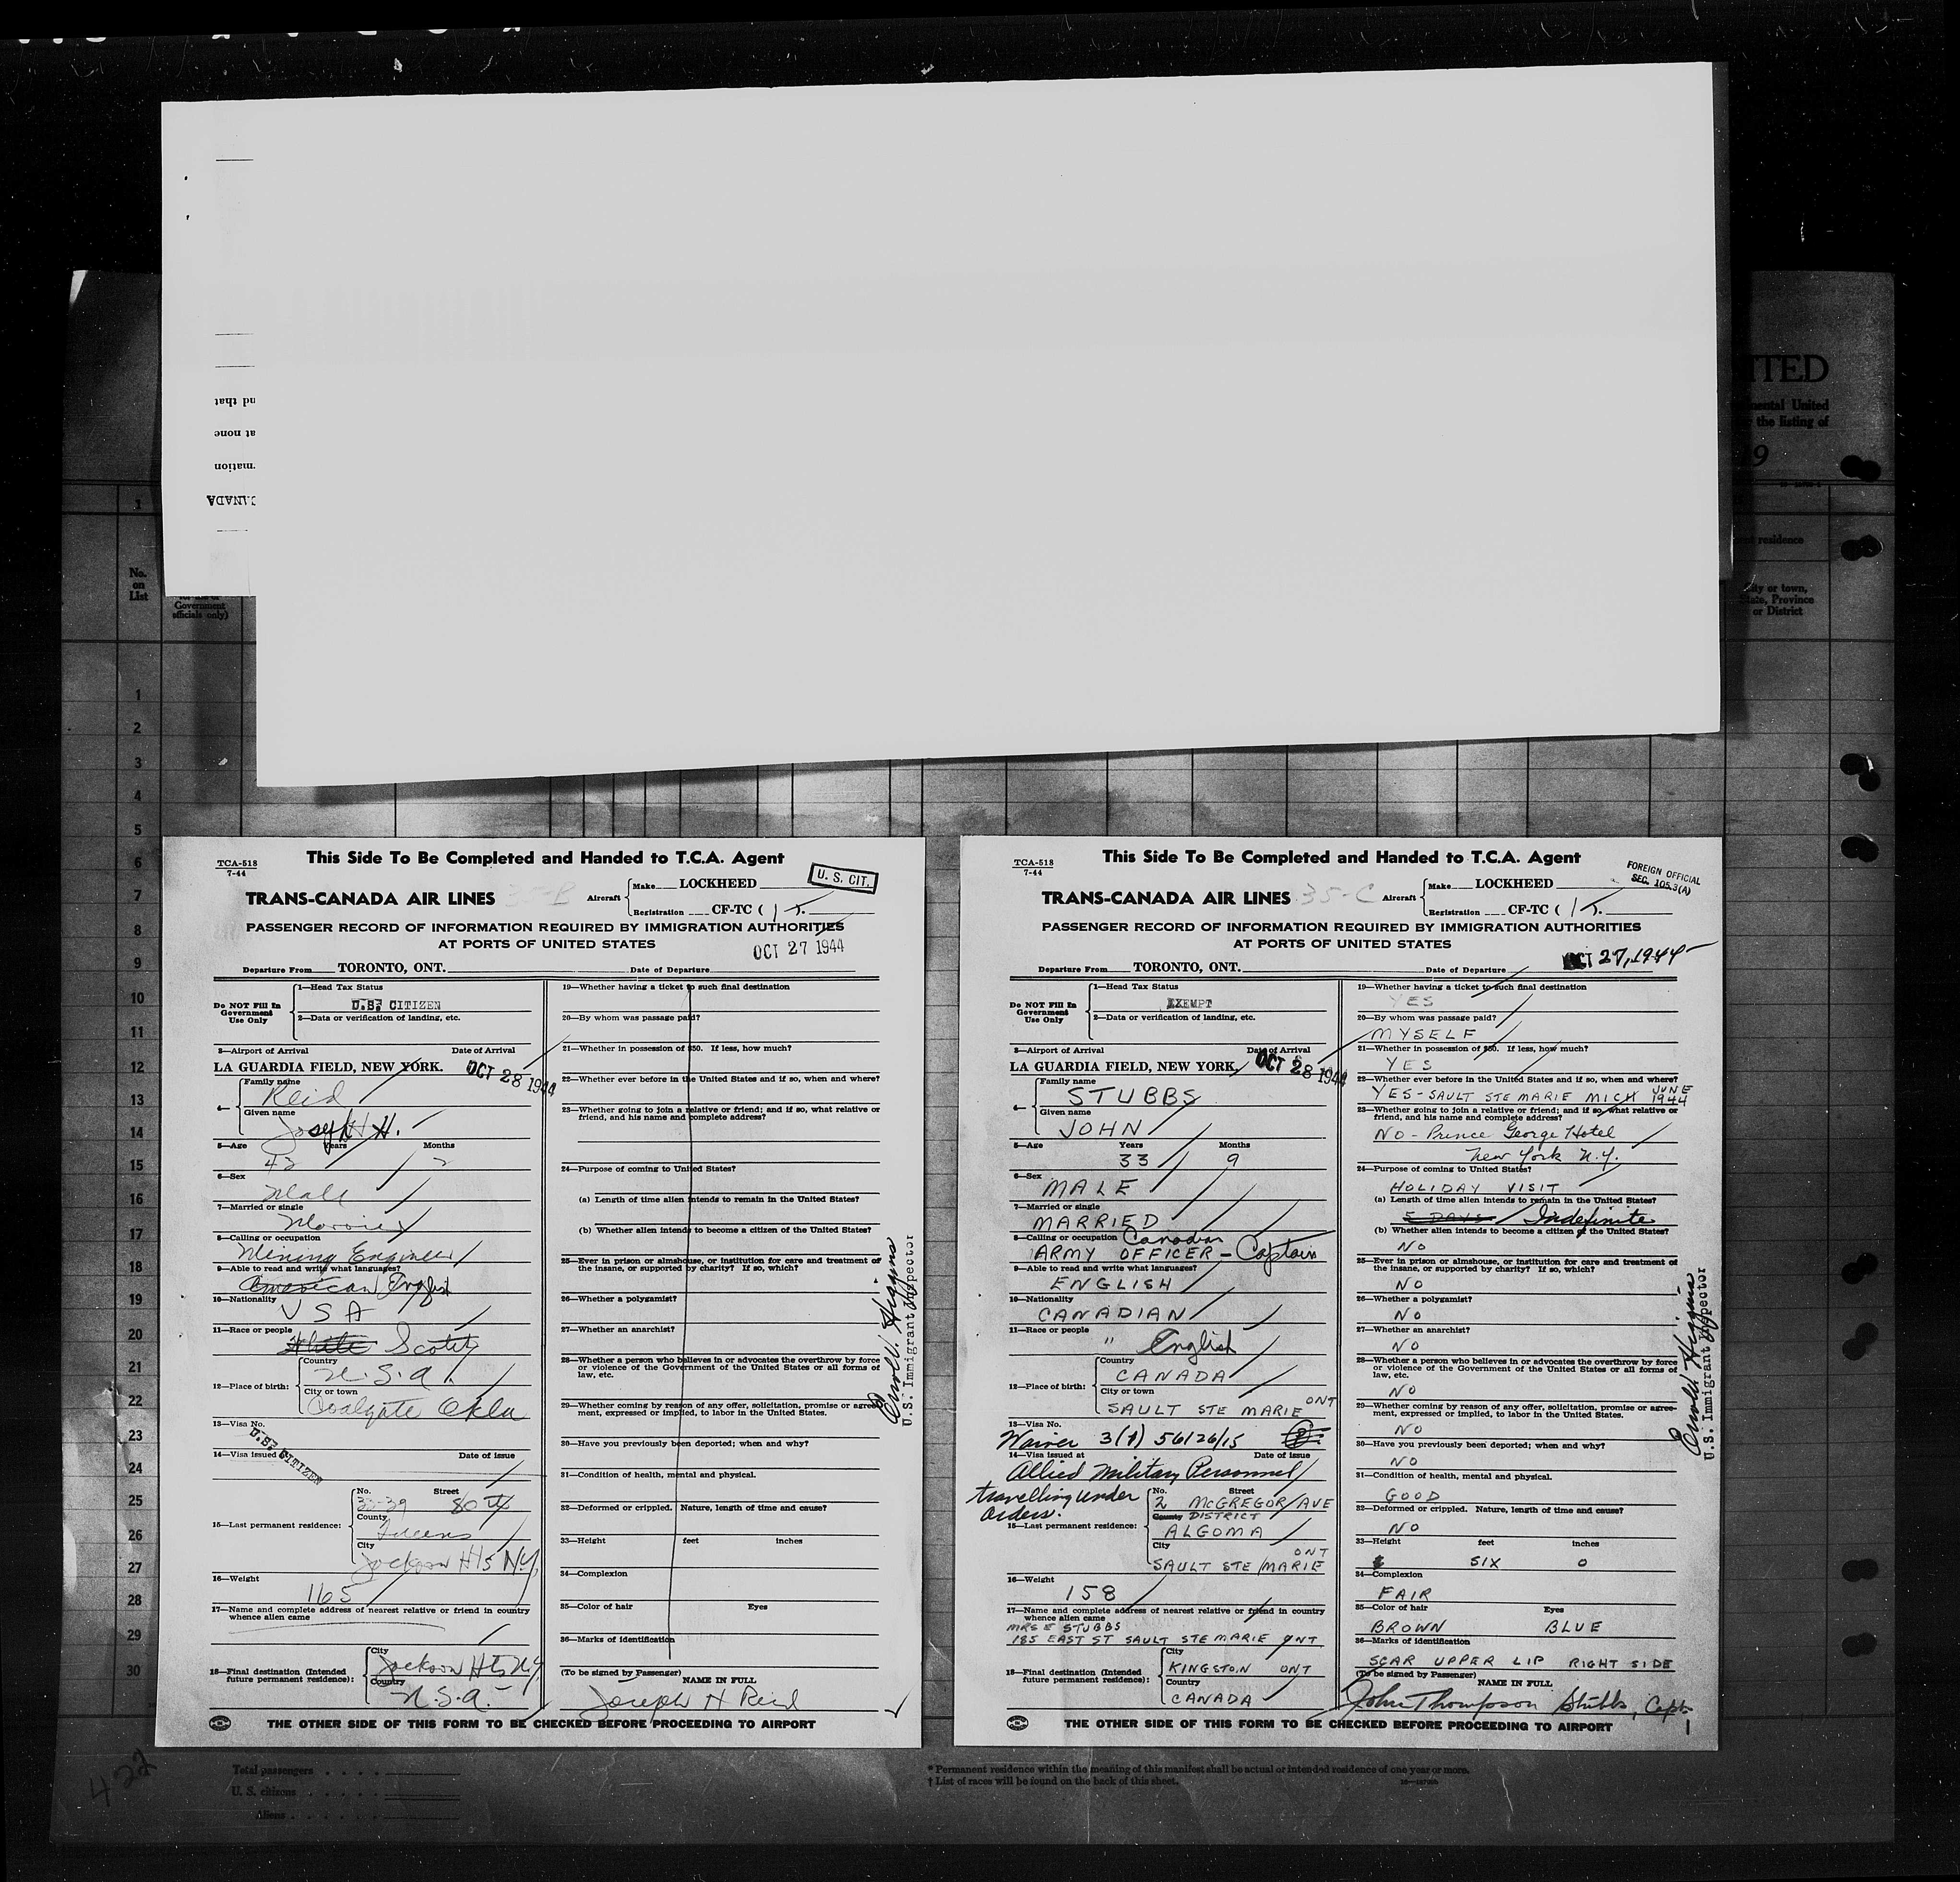 nd that
at none
mation
CANADA
ITED
mental United
the listing of
9
residence
No.
on
List
Government
officials only)
City or town,
State, Province
or District
1
1
2
3
4
5
6
7
8
9
10
11
12
13
14
15
16
17
18
19
20
21
22
23
24
25
26
27
28
29
30
TCA-518
7-44
This Side To Be Completed and Handed to T.C.A. Agent
U. S. CIT.
TRANS-CANADA AIR LINES 35-B
Aircraft Make LOCKHEED
Registration CF-TC ( ) T.
PASSENGER RECORD OF INFORMATION REQUIRED BY IMMIGRATION AUTHORITIES
AT PORTS OF UNITED STATES
OCT 27 1944
Departure From TORONTO, ONT. Date of Departure
Do NOT Fill In
Government
Use Only
1—Head Tax Status
U.S. CITIZEN
2—Data or verification of landing, etc.
3—Airport of Arrival Date of Arrival
LA GUARDIA FIELD, NEW YORK. OCT 28 1944
4— Family name
Reid
Given name
Joseph H.
5—Age Years Months
42 2
6—Sex
Male
7—Married or single
Married
8—Calling or occupation
Mining Engineer
9—Able to read and write what languages?
American English
10—Nationality
USA
11—Race or people
White Scotch
12—Place of birth: Country
U.S.A.
City or town
Coalgate Okla
13—Visa No.
U.S. CITIZEN
14—Visa issued Date of issue
15—Last permanent residence: No. Street
80th
County
Queens
City
Jackson Hts N.Y.
16—Weight
165
17—Name and complete address of nearest relative or friend in country
whence alien came
18—Final destination (Intended
future permanent residence):
City
Jackson Hts N.Y.
Country
U.S.A.
19—Whether having a ticket to such final destination
20—By whom was passage paid?
21—Whether in possession of $50. If less, how much?
22—Whether ever before in the United States and if so, when and where?
23—Whether going to join a relative or friend; and if so, what relative or
friend, and his name and complete address?
24—Purpose of coming to United States?
(a) Length of time alien intends to remain in the United States?
(b) Whether alien intends to become a citizen of the United States?
25—Ever in prison or almshouse, or institution for care and treatment of
the insane, or supported by charity? If so, which?
26—Whether a polygamist?
27—Whether an anarchist?
28—Whether a person who believes in or advocates the overthrow by force
or violence of the Government of the United States or all forms of
law, etc.
29—Whether coming by reason of any offer, solicitation, promise or agree-
ment, expressed or implied, to labor in the United States.
30—Have you previously been deported; when and why?
31—Condition of health, mental and physical.
32—Deformed or crippled. Nature, length of time and cause?
33—Height feet inches
34—Complexion
35—Color of hair Eyes
36—Marks of identification
(To be signed by Passenger) NAME IN FULL
Joseph H Reid
U.S. Immigrant Inspector
THE OTHER SIDE OF THIS FORM TO BE CHECKED BEFORE PROCEEDING TO AIRPORT
TCA-518
7-44
This Side To Be Completed and Handed to T.C.A. Agent
FOREIGN OFFICIAL
SEC. 105.3(A)
TRANS-CANADA AIR LINES 35-C
Aircraft Make LOCKHEED
Registration CF-TC ( ) T.
PASSENGER RECORD OF INFORMATION REQUIRED BY IMMIGRATION AUTHORITIES
AT PORTS OF UNITED STATES
OCT 27, 1944
Departure From TORONTO, ONT. Date of Departure
Do NOT Fill In
Government
Use Only
1—Head Tax Status
EXEMPT
2—Data or verification of landing, etc.
3—Airport of Arrival Date of Arrival
LA GUARDIA FIELD, NEW YORK. OCT 28 1944
4— Family name
STUBBS
Given name
JOHN
5—Age Years Months
33 9
6—Sex
MALE
7—Married or single
MARRIED
8—Calling or occupation Canadian
ARMY OFFICER - Captain
9—Able to read and write what languages?
ENGLISH
10—Nationality
CANADIAN
11—Race or people
" English
12—Place of birth: Country
CANADA
City or town
SAULT STE MARIE ONT
13—Visa No.
Waiver 3(1) 56126/15
14—Visa issued at Date of issue
Allied Military Personnel
travelling under
orders.
15—Last permanent residence: No. Street
2 McGREGOR AVE
County DISTRICT
ALGOMA
City
SAULT STE MARIE ONT
16—Weight
158
17—Name and complete address of nearest relative or friend in country
whence alien came
MRS E STUBBS
185 EAST ST SAULT STE MARIE ONT
18—Final destination (Intended
future permanent residence):
City
KINGSTON ONT
Country
CANADA
19—Whether having a ticket to such final destination
YES
20—By whom was passage paid?
MYSELF
21—Whether in possession of $50. If less, how much?
YES
22—Whether ever before in the United States and if so, when and where?
YES - SAULT STE MARIE MICH JUNE 1944
23—Whether going to join a relative or friend; and if so, what relative or
friend, and his name and complete address?
NO - Prince George Hotel
New York N.Y.
24—Purpose of coming to United States?
HOLIDAY VISIT
(a) Length of time alien intends to remain in the United States?
5 DAYS Indefinite
(b) Whether alien intends to become a citizen of the United States?
NO
25—Ever in prison or almshouse, or institution for care and treatment of
the insane, or supported by charity? If so, which?
NO
26—Whether a polygamist?
NO
27—Whether an anarchist?
NO
28—Whether a person who believes in or advocates the overthrow by force
or violence of the Government of the United States or all forms of
law, etc.
NO
29—Whether coming by reason of any offer, solicitation, promise or agree-
ment, expressed or implied, to labor in the United States.
NO
30—Have you previously been deported; when and why?
NO
31—Condition of health, mental and physical.
GOOD
32—Deformed or crippled. Nature, length of time and cause?
NO
33—Height feet inches
SIX 0
34—Complexion
FAIR
35—Color of hair Eyes
BROWN BLUE
36—Marks of identification
SCAR UPPER LIP RIGHT SIDE
(To be signed by Passenger) NAME IN FULL
John Thompson Stubbs, Capt.
U.S. Immigrant Inspector
THE OTHER SIDE OF THIS FORM TO BE CHECKED BEFORE PROCEEDING TO AIRPORT
422
Total passengers
U. S. citizens
Aliens
* Permanent residence within the meaning of this manifest shall be actual or intended residence of one year or more.
† List of races will be found on the back of this sheet.